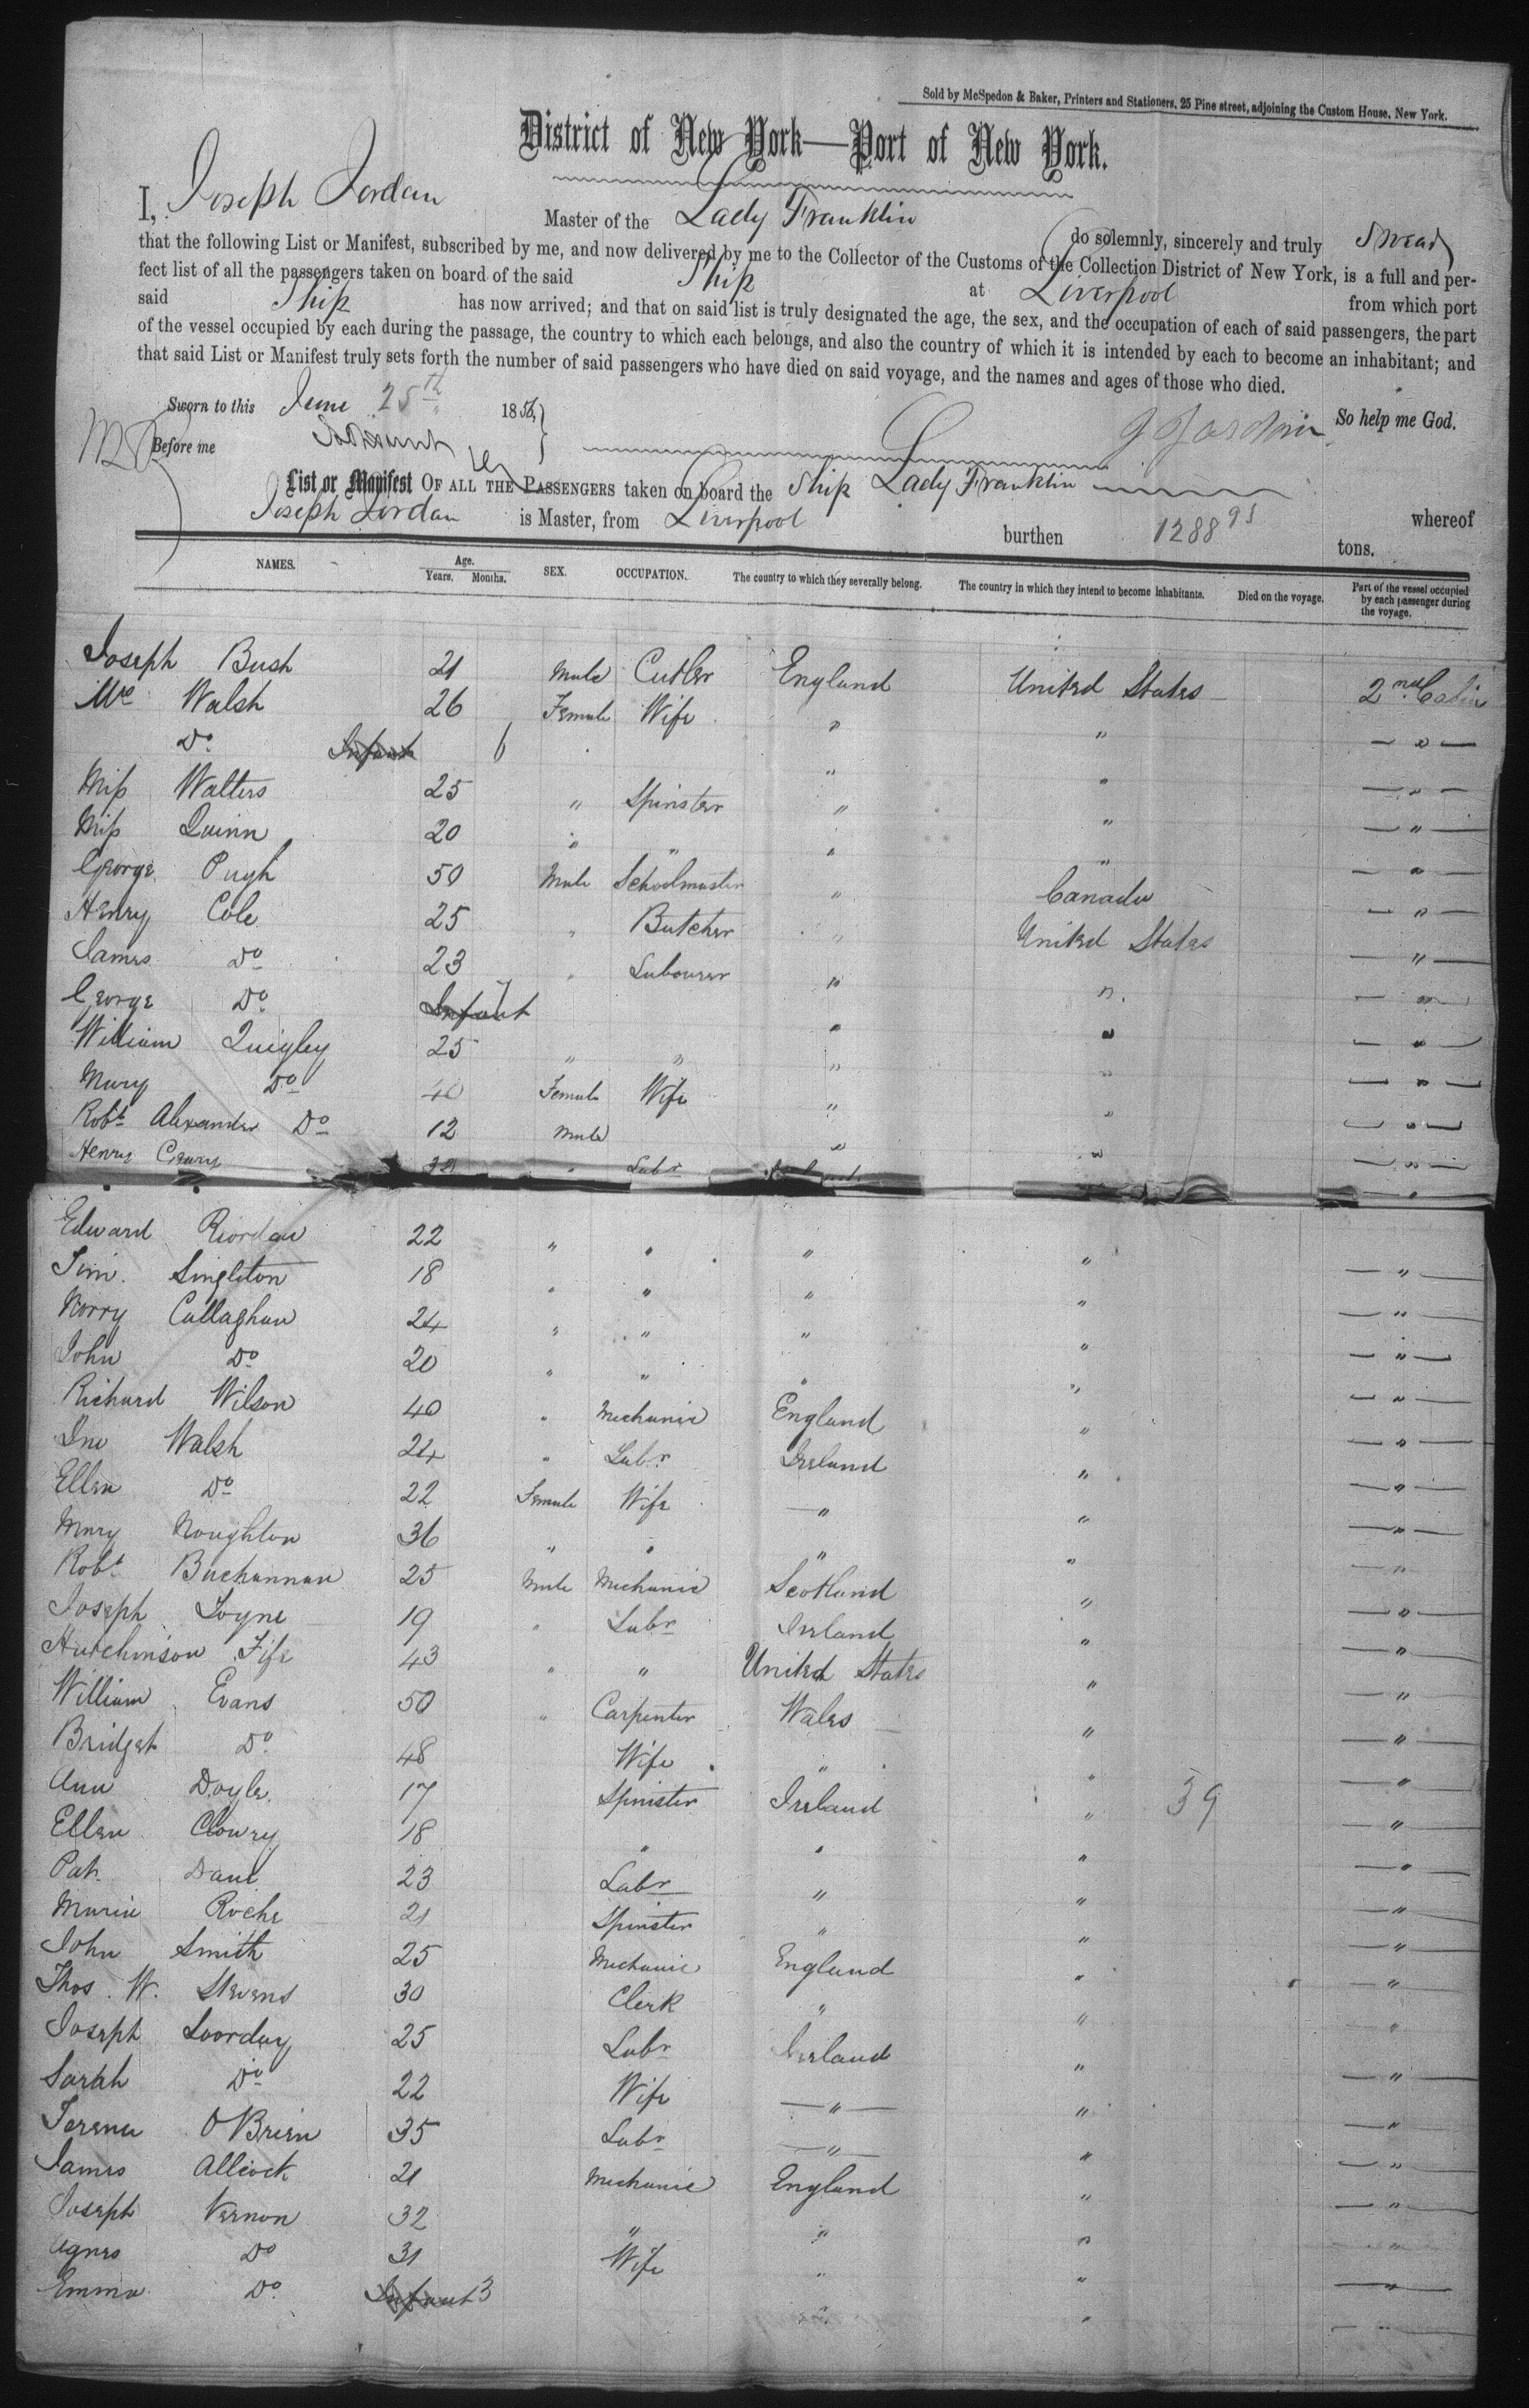 Sold by McSpedon & Baker, Printers and Stationers, 25 Pine street, adjoining the Custom House, New York.
District of New York—Port of New York.
I, Joseph Jordan Master of the Lady Franklin do solemnly, sincerely and truly swear
that the following List or Manifest, subscribed by me, and now delivered by me to the Collector of the Customs of the Collection District of New York, is a full and per-
fect list of all the passengers taken on board of the said Ship at Liverpool from which port
said Ship has now arrived; and that on said list is truly designated the age, the sex, and the occupation of each of said passengers, the part
of the vessel occupied by each during the passage, the country to which each belongs, and also the country of which it is intended by each to become an inhabitant; and
that said List or Manifest truly sets forth the number of said passengers who have died on said voyage, and the names and ages of those who died.
Sworn to this June 25th 1856, So help me God.
Before me J Jordan
List or Manifest OF ALL THE PASSENGERS taken on board the Ship Lady Franklin whereof
Joseph Jordan is Master, from Liverpool burthen 1288 95 tons.
NAMES. Age. Years. Months. SEX. OCCUPATION. The country to which they severally belong. The country in which they intend to become inhabitants. Died on the voyage. Part of the vessel occupied by each passenger during the voyage.
Joseph Bush 21 Male Cutler England United States 2nd Cabin
Mrs Walsh 26 Female Wife " " "
Do Infant 6 " " "
Miss Walters 25 " Spinster " " "
Miss Quinn 20 " " " " "
George Pugh 50 Male Schoolmaster " Canada "
Henry Cole 25 " Butcher " United States "
James Do 23 " Labourer " " "
George Do Infant " " "
William Quigley 25 " " " " "
Mary Do 40 Female Wife " " "
Robt Alexander Do 12 Male " " "
Henry 30 " Labr "
Edward Riordan 22 " " " " "
Tim. Singleton 18 " " " " "
Norry Callaghan 24 " " " " "
John Do 20 " " " " "
Richard Wilson 40 " Mechanic England " "
Jno Walsh 24 " Labr Ireland " "
Ellen Do 22 Female Wife " " "
Mary Noughton 36 " " " " "
Robt Buchannan 25 Male Mechanic Scotland " "
Joseph Toyne 19 " Labr Ireland " "
Hutchinson Fife 43 " " United States " "
William Evans 50 " Carpenter Wales " "
Bridget Do 48 Wife " " "
Ann Doyle 17 Spinster Ireland " 39 "
Ellen Clowry 18 " " " "
Pat Dane 23 Labr " " "
Maria Roche 21 Spinster " " "
John Smith 25 Mechanic England " "
Thos. W. Stevens 30 Clerk " " "
Joseph Loorday 25 Labr Ireland " "
Sarah Do 22 Wife " " "
Terence O'Brien 35 Labr " " "
James Allcock 21 Mechanic England " "
Joseph Vernon 32 " " " "
Agnes Do 31 Wife " " "
Emma Do Infant 3 " " "